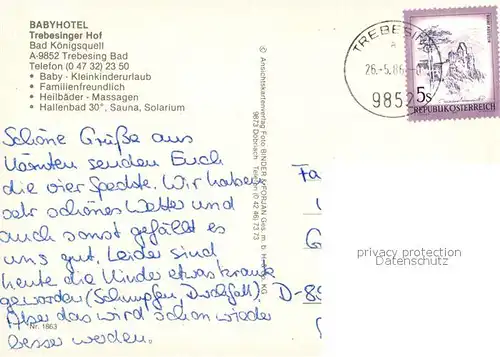 BABYHOTEL
Trebesinger Hof
Bad Königsquell
A-9852 Trebesing Bad
Telefon (0 47 32) 23 50
• Baby - Kleinkinderurlaub
• Familienfreundlich
• Heilbäder - Massagen
• Hallenbad 30°, Sauna, Solarium
Schöne Grüße aus
Kärnten senden Euch
die vier Spechte. Wir haben
sehr schönes Wetter und
auch sonst gefällt es
uns gut. Leider sind
heute die Kinder etwas krank
geworden (Schnupfen, Durchfall).
Aber das wird schon wieder
besser werden.
Nr. 1863
© Ansichtskartenverlag Foto BINDER &
Ges. m. b. H. KG
9873 Döbriach Telefon (0 42 46) 73 73
TREBESING
26.-5.86
9852
5s
REPUBLIK ÖSTERREICH
Fa
G
D-89
privacy protection
Datenschutz